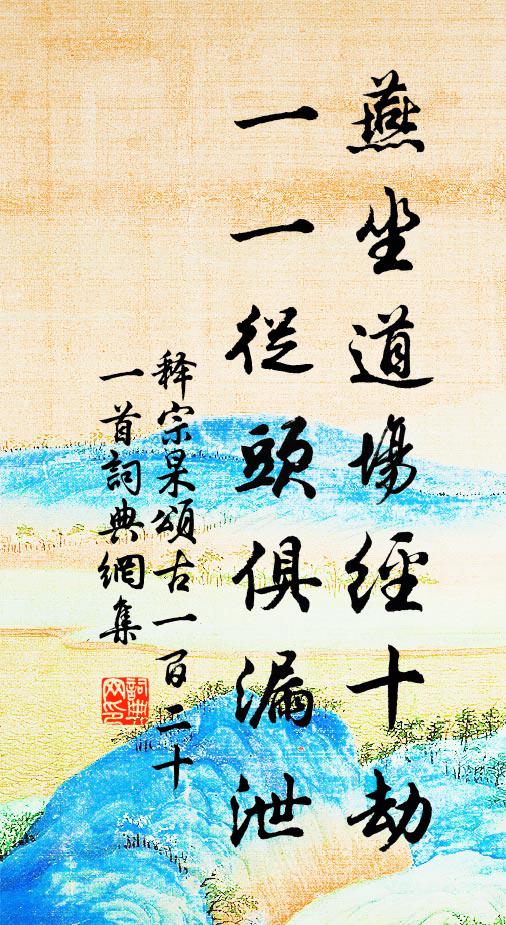 燕坐道場經十劫
一一從頭俱漏泄
释宗杲頌古一百二十
一首詞典網集
詞典网印